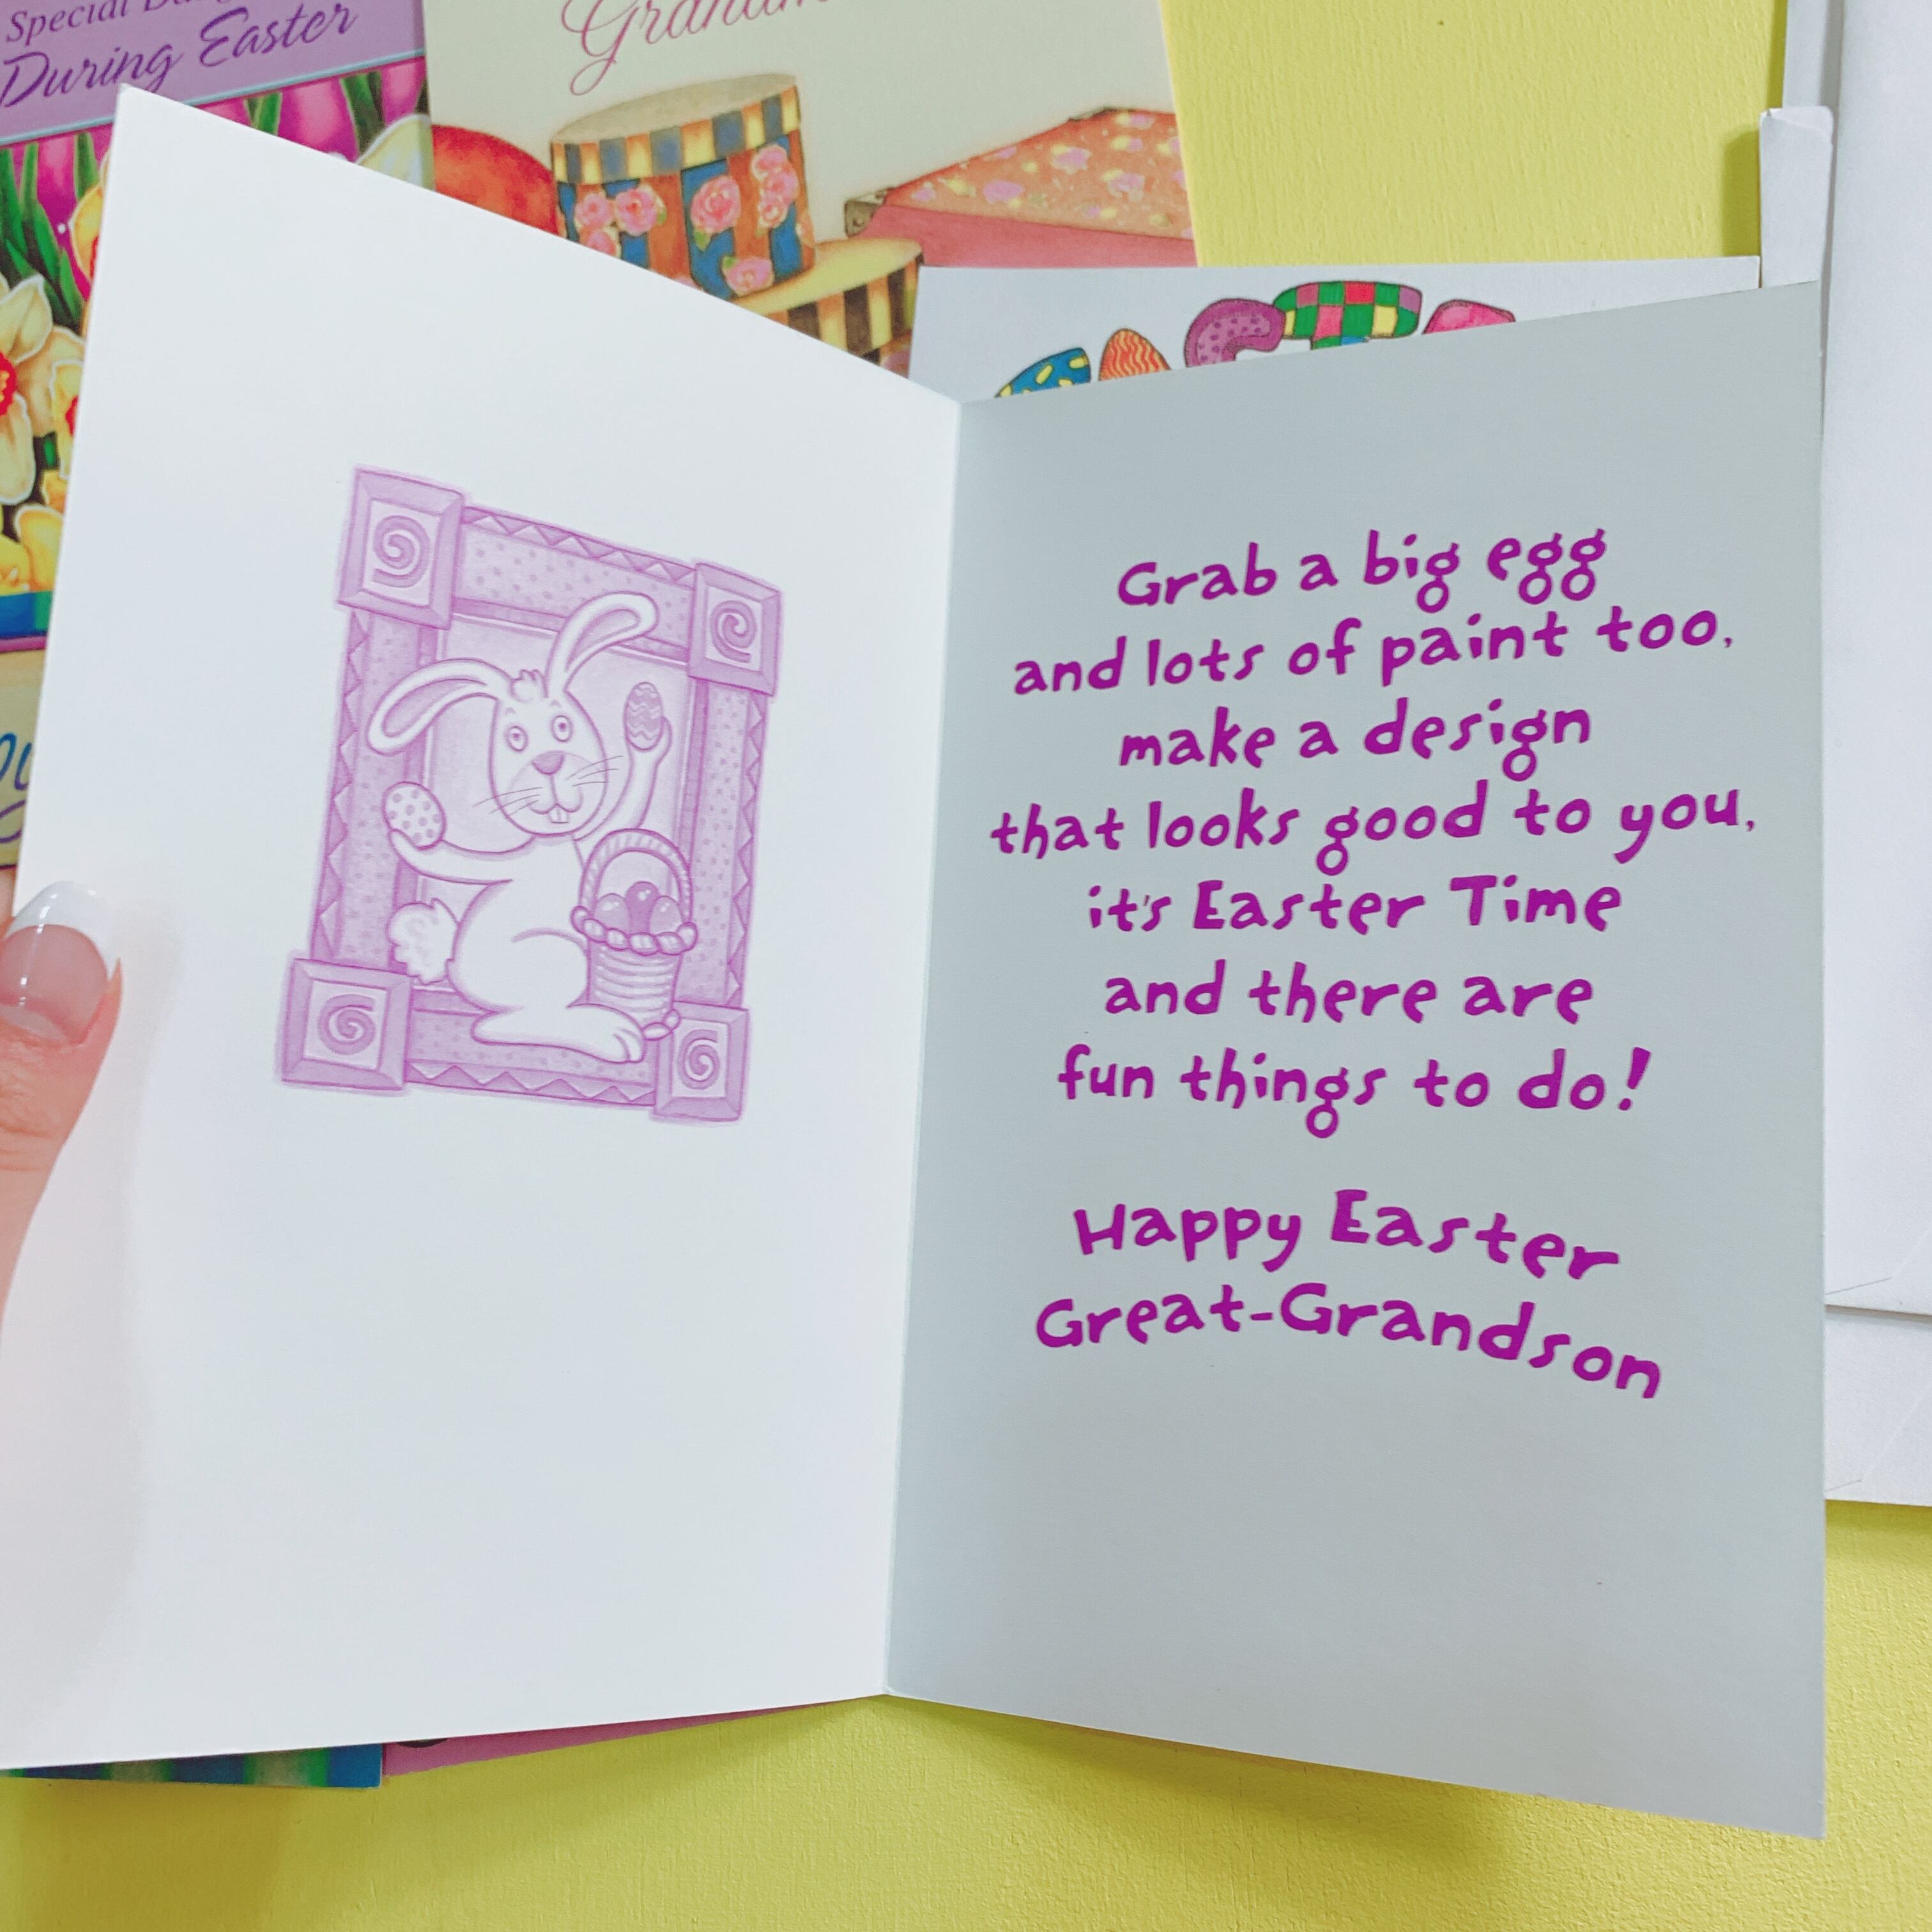 Special
During Easter
Grab a big egg
and lots of paint too,
make a design
that looks good to you,
it's Easter Time
and there are
fun things to do!
Happy Easter
Great-Grandson